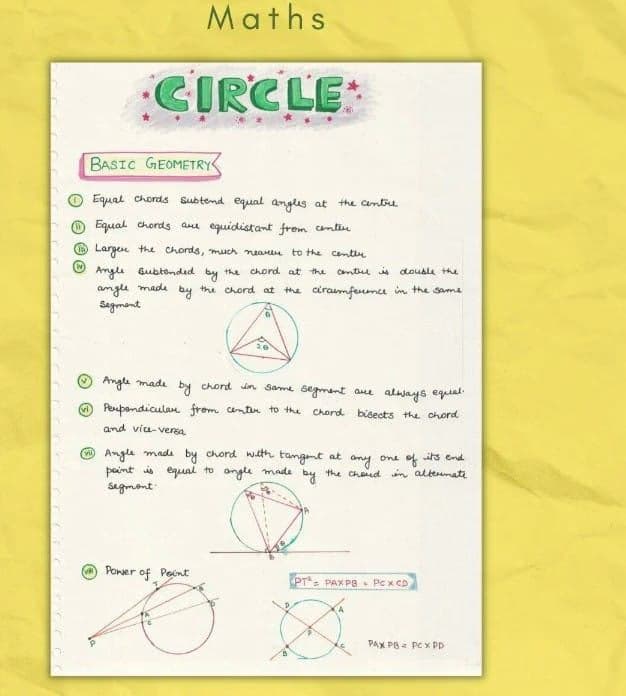 Maths
CIRCLE
BASIC GEOMETRY
(i) Equal chords subtend equal angles at the centre
(ii) Equal chords are equidistant from center
(iii) Larger the chords, much nearer to the center
(iv) Angle subtended by the chord at the centre is double the
angle made by the chord at the circumference in the same
segment
θ
2θ
(v) Angle made by chord in same segment are always equal.
(vi) Perpendicular from center to the chord bisects the chord
and vice-versa
(vii) Angle made by chord with tangent at any one of its end
point is equal to angle made by the chord in alternate
segment.
A
θ
B
(viii) Power of Point
PT² = PAXPB = PCXCD
T
B
D
A
C
P
D
A
P
B
C
PAXPB = PCXPD